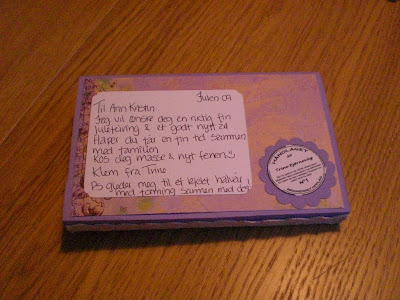 Julen 09
Til Ann Kristin
Jeg vil ønske deg en riktig fin
julefeiring & et godt nytt år
Håper du får en fin tid sammen
med familien
Kos deg masse & nyt ferien
Klem fra Trine
PS gleder meg til et kjekt halvår
med trening sammen med deg
HÅNDLAGET
av
Trine Bjerkaseng